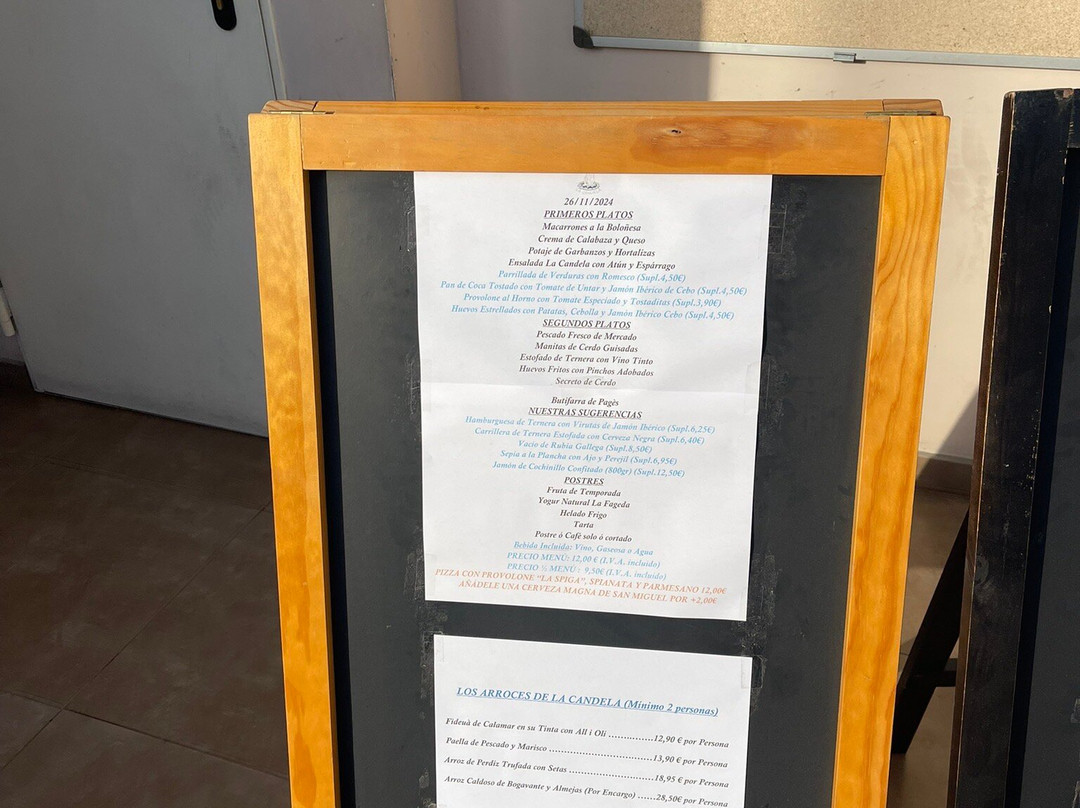 26/11/2024
PRIMEROS PLATOS
Macarrones a la Boloñesa
Crema de Calabaza y Queso
Potaje de Garbanzos y Hortalizas
Ensalada La Candela con Atún y Espárrago
Parrillada de Verduras con Romesco (Supl.4,50€)
Pan de Coca Tostado con Tomate de Untar y Jamón Ibérico de Cebo (Supl.4,50€)
Provolone al Horno con Tomate Especiado y Tostaditas (Supl.3,90€)
Huevos Estrellados con Patatas, Cebolla y Jamón Ibérico Cebo (Supl.4,50€)
SEGUNDOS PLATOS
Pescado Fresco de Mercado
Manitas de Cerdo Guisadas
Estofado de Ternera con Vino Tinto
Huevos Fritos con Pinchos Adobados
Secreto de Cerdo
Butifarra de Pagès
NUESTRAS SUGERENCIAS
Hamburguesa de Ternera con Virutas de Jamón Ibérico (Supl.6,25€)
Carrillera de Ternera Estofada con Cerveza Negra (Supl.6,40€)
Vacío de Rubia Gallega (Supl.8,50€)
Sepia a la Plancha con Ajo y Perejil (Supl.6,95€)
Jamón de Cochinillo Confitado (800gr) (Supl.12,50€)
POSTRES
Fruta de Temporada
Yogur Natural La Fageda
Helado Frigo
Tarta
Postre ó Cafè solo ó cortado
Bebida Incluida: Vino, Gaseosa o Agua
PRECIO MENÚ: 12,00 € (I.V.A. incluido)
PRECIO ½ MENÚ: 9,50€ (I.V.A. incluido)
PIZZA CON PROVOLONE “LA SPIGA”, SPIANATA Y PARMESANO 12,00€
AÑÁDELE UNA CERVEZA MAGNA DE SAN MIGUEL POR +2,00€
LOS ARROCES DE LA CANDELA (Mínimo 2 personas)
Fideuà de Calamar en su Tinta con All i Oli ...............12,90 € por Persona
Paella de Pescado y Marisco ...............................13,90 € por Persona
Arroz de Perdiz Trufada con Setas .........................18,95 € por Persona
Arroz Caldoso de Bogavante y Almejas (Por Encargo) ......28,50€ por Persona